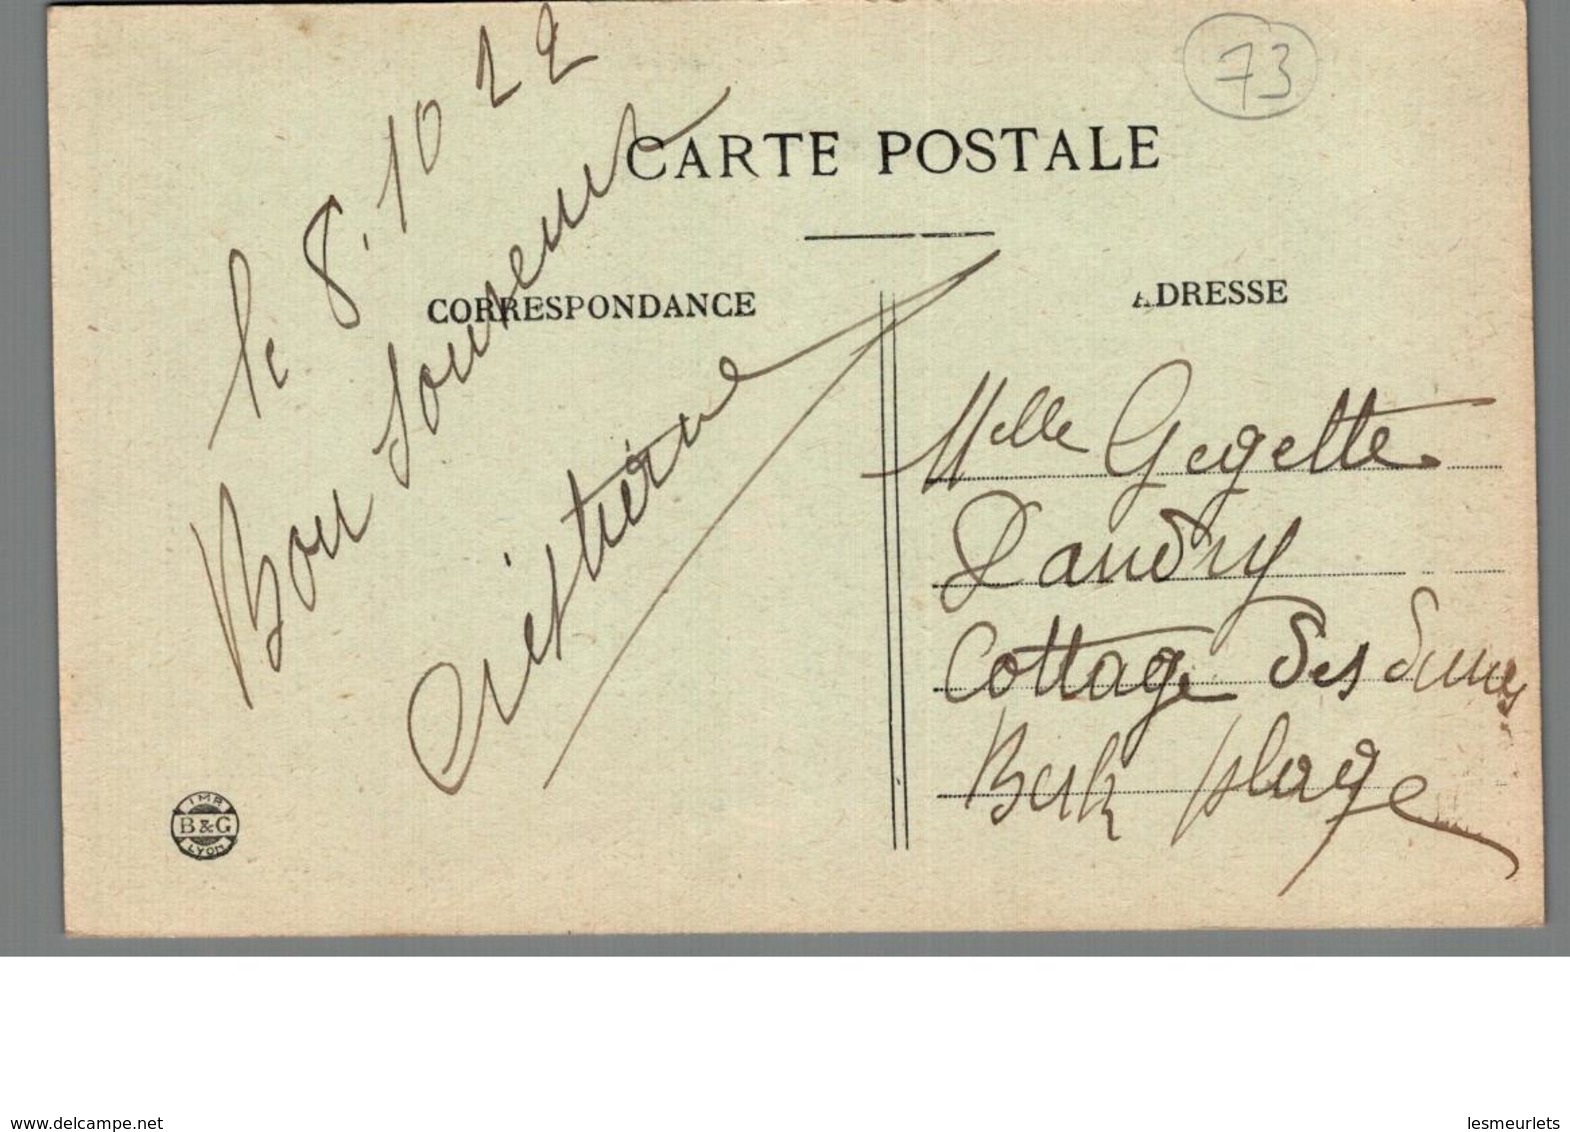 73
CARTE POSTALE
CORRESPONDANCE
ADRESSE
le 8.10 22
Bon Souvenir
Melle Gegette
Landry
Cottage des dunes
Berk plage
IMP
B&G
LYON
www.delcampe.net
lesmeurlets